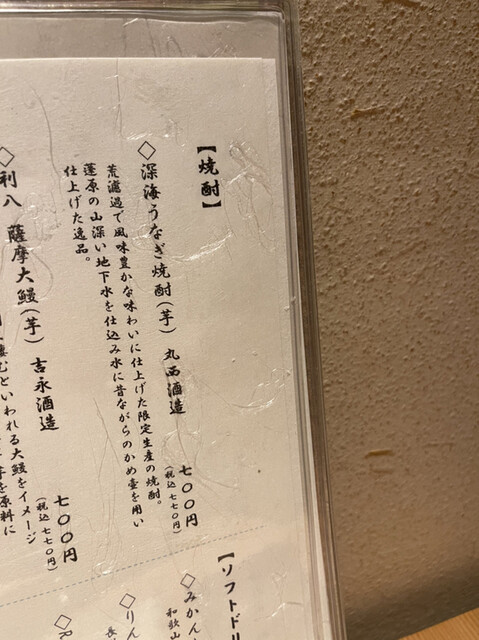 【焼酎】
◇深海うなぎ焼酎(芋) 丸西酒造 七〇〇円
(税込七七〇円)
荒濾過で風味豊かな味わいに仕上げた限定生産の焼酎。
蓬原の山深い地下水を仕込み水に昔ながらのかめ壺を用い
仕上げた逸品。
◇利八 薩摩大鰻(芋) 吉永酒造 七〇〇円
(税込七七〇円)
棲むといわれる大鰻をイメージ
芋を原料に
【ソフトドリ
◇みかん
和歌山
◇りん
長